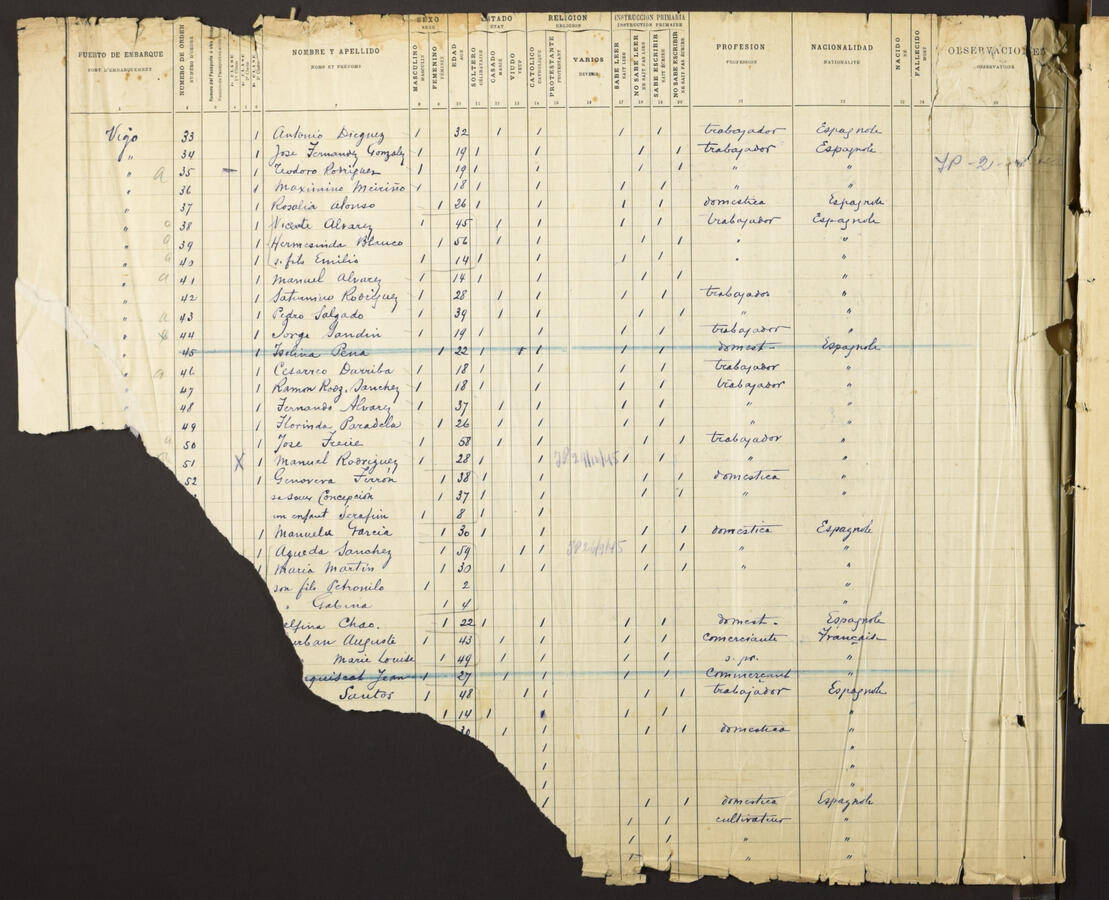 PUERTO DE EMBARQUE NUMERO DE ORDEN NOMBRE Y APELLIDO SEXO EDAD ESTADO RELIGION INSTRUCCION PRIMARIA PROFESION NACIONALIDAD NACIDO FALLECIDO OBSERVACIONES
PORT D'EMBARQUEMENT NUMÉRO D'ORDRE NOMS ET PRÉNOMS SEXE ÉTAT RELIGION INSTRUCTION PRIMAIRE PROFESSION NATIONALITÉ OBSERVATIONS
MASCULINO FEMENINO SOLTERO CASADO VIUDO CATOLICO PROTESTANTE VARIOS SABE LEER NO SABE LEER SABE ESCRIBIR NO SABE ESCRIBIR
Vigo 33 1 Antonio Dieguez 1 32 1 1 1 1 trabajador Espagnole
" 34 1 Jose Fernandz Gonzalz 1 19 1 1 1 1 trabajador Espagnole
" a 35 1 Teodoro Rodriguez 1 19 1 1 1 1 " "
" 36 1 Maximino Meiriño 1 18 1 1 1 1 " "
" 37 1 Rosalia Alonso 1 26 1 1 1 1 domestica Espagnole
" a 38 1 Vicente Alvarez 1 45 1 1 1 1 trabajador Espagnole
" a 39 1 Hermesinda Blanco 1 56 1 1 1 1 " "
" a 40 1 s. fils Emilio 1 14 1 1 1 1 " "
" a 41 1 Manuel Alvarez 1 14 1 1 1 1 "
" 42 1 Saturnino Rodriguez 1 28 1 1 1 1 trabajador "
" a 43 1 Pedro Salgado 1 39 1 1 1 1 " "
" 44 1 Jorge Sandin 1 19 1 1 1 1 trabajador "
" 45 1 Isolina Pena 1 22 1 1 1 1 domest- Espagnole
" a 46 1 Cesareo Darriba 1 18 1 1 1 1 trabajador "
" 47 1 Ramon Rodz. Sanchez 1 18 1 1 1 1 trabajador "
" 48 1 Fernando Alvarez 1 37 1 1 1 1 " "
" 49 1 Florinda Paradela 1 26 1 1 1 1 " "
a 50 1 Jose Freire 1 58 1 1 1 1 trabajador "
51 X 1 Manuel Rodriguez 1 28 1 1 1 1 " "
52 1 Genovera Ferrón 1 38 1 1 1 1 domestica "
1 sa soeur Concepción 1 37 1 1 1 1 " "
1 un enfant Serafin 1 8 1 1 "
1 Manuela Garcia 1 30 1 1 1 1 domestica Espagnole
1 Agueda Sanchez 1 59 1 1 1 1 " "
1 Maria Martin 1 30 1 1 1 1 " "
son fils Petronilo 1 2 1 "
" Gabina 1 4 1 "
elfina Chao. 1 22 1 1 1 1 domest- Espagnole
urban Auguste 1 43 1 1 1 1 comerciante Français
Marie Louise 1 49 1 1 1 1 s. pr. "
Jean 1 27 1 1 1 1 Commerçant "
Santos 1 48 1 1 1 1 trabajador Espagnole
1 14 1 1 1 1 "
30 1 1 1 domestica "
1 "
1 "
1 "
1 1 1 domestica Espagnole
1 1 cultivateur "
1 1 " "
1 1 " "